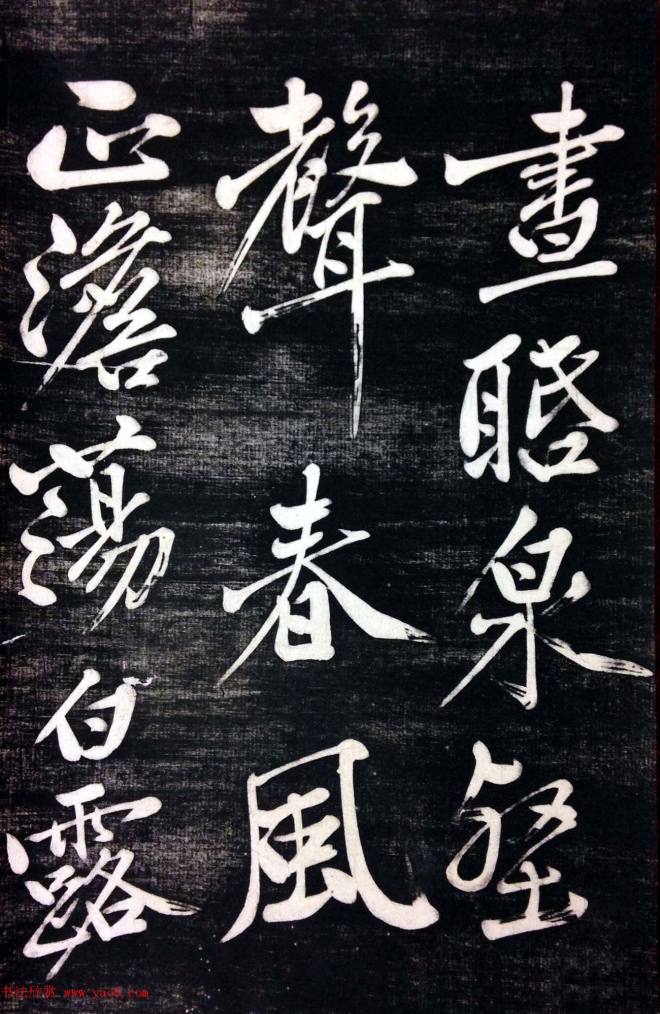 晝聒泉壑
聲春風
正澹蕩白露
书法欣赏 www.yac8.com